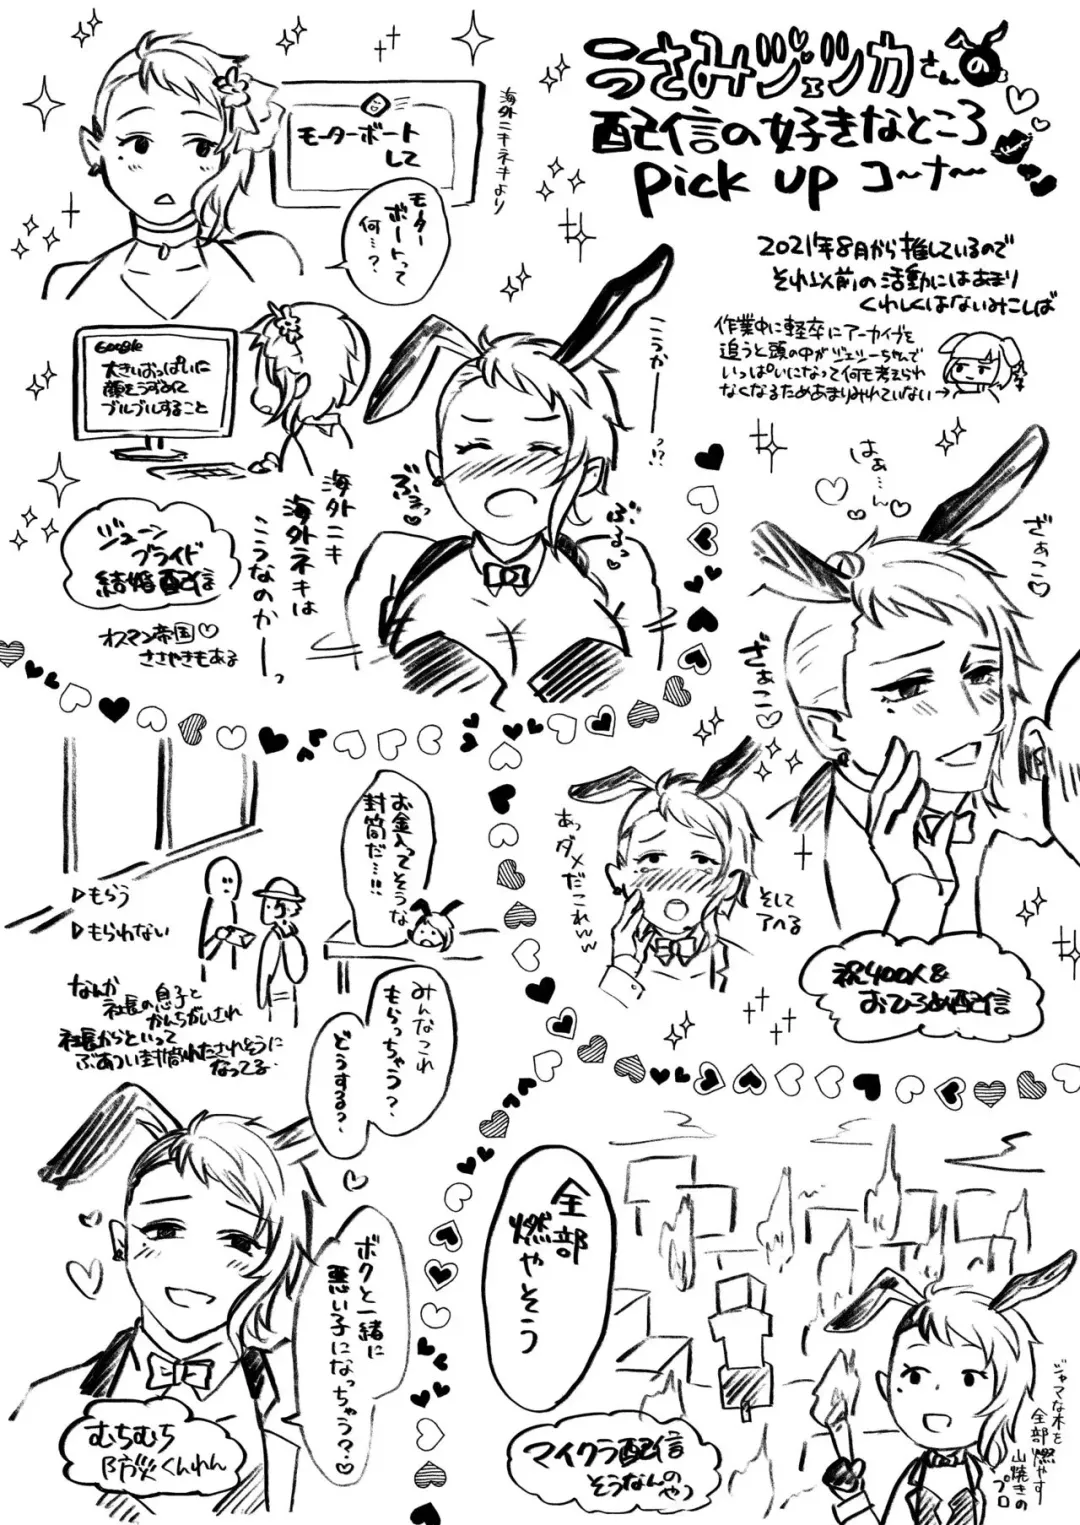 うさみジェシカさんの
配信の好きなところ
pick up コーナー
2021年8月から推しているので
それ以前の活動にはあまり
くわしくはないみこしば
作業中に軽率にアーカイブを
追うと頭の中がジェシーちゃんで
いっぱいになって何も考えられ
なくなるためあまりみれていない→
モーターボート
して
海外ニキネキより
モーター
ボートって
何…?
Google
大きいおっぱいに
顔をうずめて
ブルブルすること
こうかーーー!?
ぶるっ
海外ニキ
海外ネキは
こうなのかーーっ
ジューン
ブライド
結婚配信
オスマン帝国♡
ささやきもある
はぁ…ん♡
ざぁこ♡
ざぁこ♡
あっ
ダメ
だこれww
そして
アヘる
祝400人&
おひろめ配信
お金入ってそうな
封筒だ…!!
▷もらう
▷もらわない
なんか
社長の息子と
かんちがいされ
社長からといって
ぶあつい封筒わたされそうに
なってる
みんなこれ
もらっちゃう?
どうする?
ボクと一緒に
悪い子になっちゃう?♡
むちむち
防災くんれん
全部
燃やそう
マイクラ配信
そうなんのやつ
ジャマな木を
全部燃やす
山焼きの
プロ